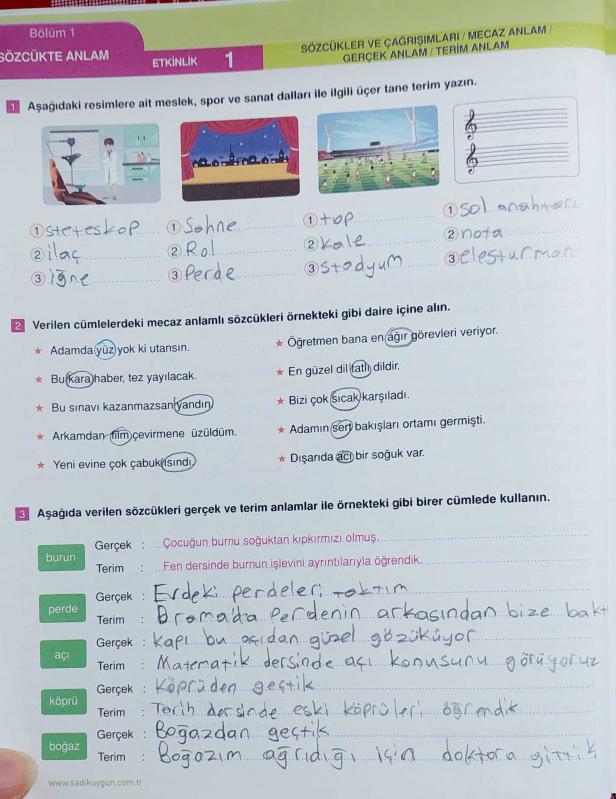 Bölüm 1
SÖZCÜKTE ANLAM
ETKİNLİK 1
SÖZCÜKLER VE ÇAĞRIŞIMLARI / MECAZ ANLAM /
GERÇEK ANLAM / TERİM ANLAM
1 Aşağıdaki resimlere ait meslek, spor ve sanat dalları ile ilgili üçer tane terim yazın.
1 steteskop
2 ilaç
3 iğne
1 Sahne
2 Rol
3 Perde
1 top
2 kale
3 stadyum
1 sol anahtarı
2 nota
3 elesturman
2 Verilen cümlelerdeki mecaz anlamlı sözcükleri örnekteki gibi daire içine alın.
★ Adamda yüz yok ki utansın.
★ Bu kara haber, tez yayılacak.
★ Bu sınavı kazanmazsan yandın.
★ Arkamdan film çevirmene üzüldüm.
★ Yeni evine çok çabuk ısındı.
★ Öğretmen bana en ağır görevleri veriyor.
★ En güzel dil tatlı dildir.
★ Bizi çok sıcak karşıladı.
★ Adamın sert bakışları ortamı germişti.
★ Dışarıda acı bir soğuk var.
3 Aşağıda verilen sözcükleri gerçek ve terim anlamlar ile örnekteki gibi birer cümlede kullanın.
burun
Gerçek : Çocuğun burnu soğuktan kıpkırmızı olmuş.
Terim : Fen dersinde burnun işlevini ayrıntılarıyla öğrendik.
perde
Gerçek : Evdeki perdeleri taktım
Terim : Drama'da Perdenin arkasından bize baktı
açı
Gerçek : Kapı bu açıdan güzel gözüküyor
Terim : Matematik dersinde açı konusunu görüyoruz
köprü
Gerçek : Köprüden geçtik
Terim : Tarih dersinde eski köprüleri öğrendik
boğaz
Gerçek : Boğazdan geçtik
Terim : Boğazım ağrıdığı için doktora gittik
www.sadikuygun.com.tr